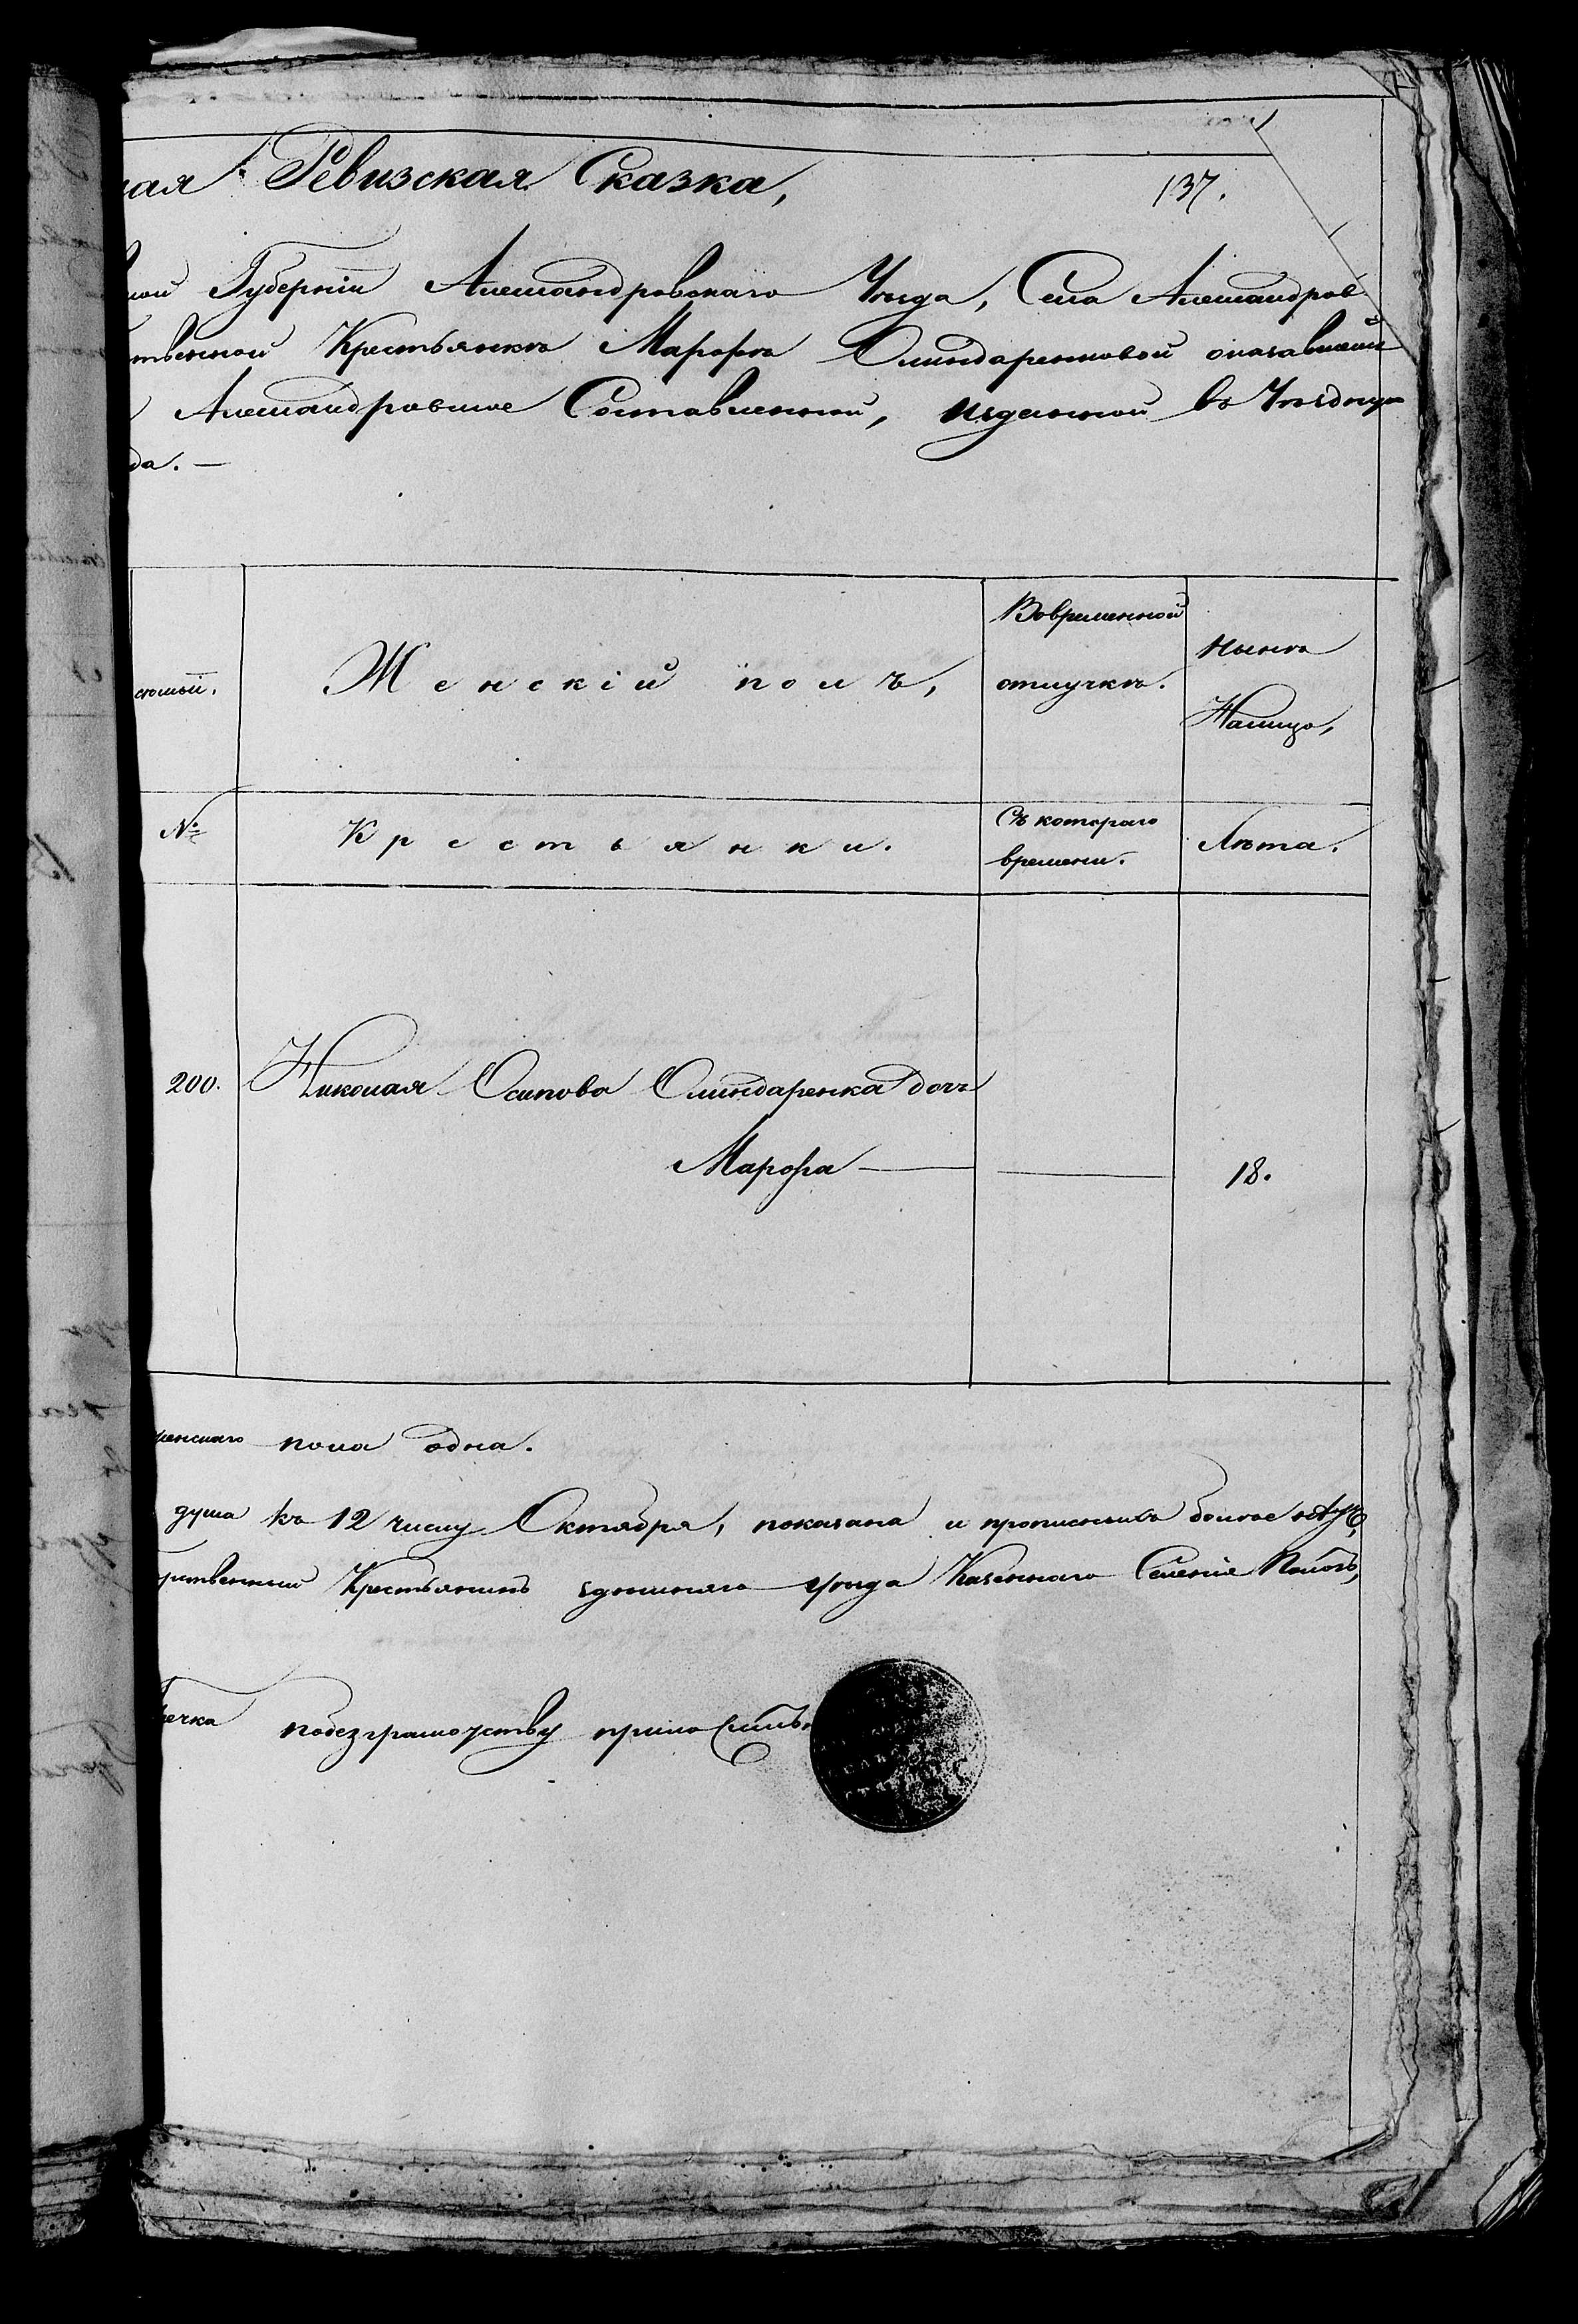 ая Ревизская Сказка,
137.
ой Губернии Александровскаго Уезда, Села Александров
твенной Крестьянкѣ Марфѣ Слиндаренковой оказавшейся
Александровкѣ Составленной, изданной въ Уездную
да. —
Женскій полъ,
Вовременной
отлучкѣ.
Нынѣ
Налицо,
№
Крестьянки.
Съ котораго
времени.
Лѣта.
200.
Николая Осипова Слиндаренка дочь
Марфа —
18.
женскаго пола одна.
душа къ 12 числу Октября, показана и прописныхъ болѣе нѣту,
рственный Крестьянинъ здешняго уезда Казеннаго Селенія
ечка побезграмотству прило